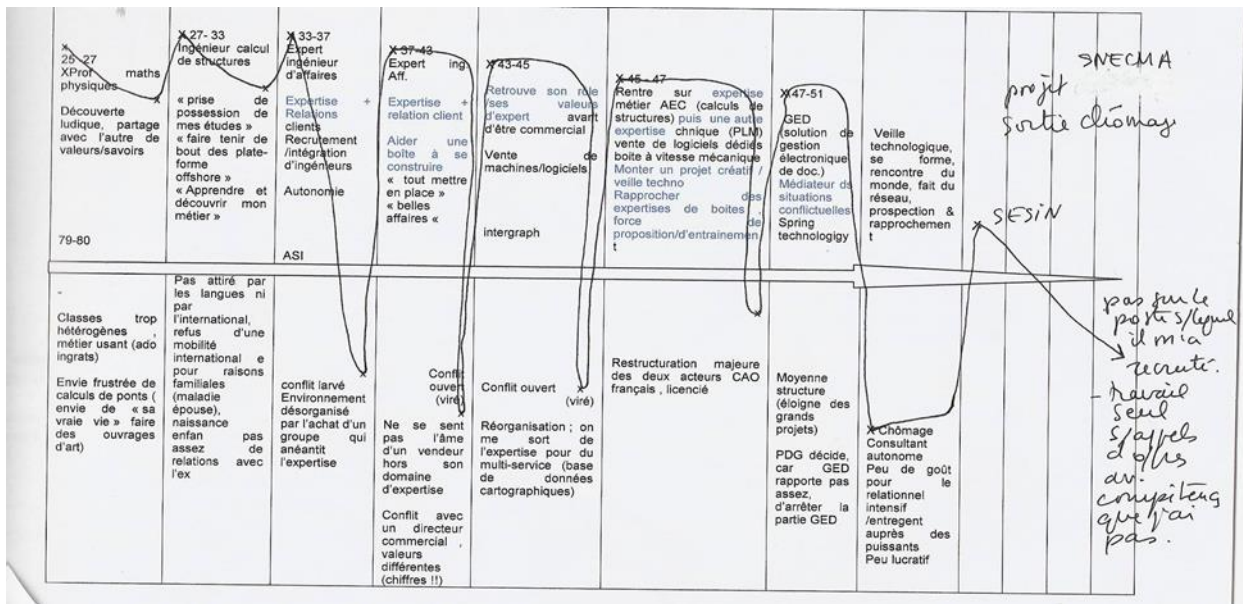 25 -27
XProf maths
physiques
Découverte
ludique, partage
avec l'autre de
valeurs/savoirs
79-80
X 27- 33
Ingénieur calcul
de structures
« prise de
possession de
mes études »
« faire tenir de
bout des plate-
forme
offshore »
« Apprendre et
découvrir mon
métier »
X 33-37
Expert
ingénieur
d'affaires
Expertise +
Relations
clients
Recrutement
/intégration
d'ingénieurs
Autonomie
ASI
X 37-43
Expert ing
Aff.
Expertise +
relation client
Aider une
boîte à se
construire
« tout mettre
en place »
« belles
affaires «
X 43-45
Retrouve son role
/ses valeurs
d'expert avant
d'être commercial
Vente de
machines/logiciels
intergraph
X 45 - 47
Rentre sur expertise
métier AEC (calculs de
structures) puis une autre
expertise chnique (PLM)
vente de logiciels dédiés
boite à vitesse mécanique
Monter un projet créatif /
veille techno
Rapprocher des
expertises de boites ,
force de
proposition/d'entrainemen
t
X47-51
GED
(solution de
gestion
électronique
de doc.)
Médiateur ds
situations
conflictuelles
Spring
technologigy
Veille
technologique,
se forme,
rencontre du
monde, fait du
réseau,
prospection &
rapprochemen
t
SESIN
SNECMA
projet
sortie chômage
-
Classes trop
hétérogènes ,
métier usant (ado
ingrats)
Envie frustrée de
calculs de ponts (
envie de « sa
vraie vie » faire
des ouvrages
d'art)
Pas attiré par
les langues ni
par
l'international,
refus d'une
mobilité
international e
pour raisons
familiales
(maladie
épouse),
naissance
enfan pas
assez de
relations avec
l'ex
conflit larvé
Environnement
désorganisé
par l'achat d'un
groupe qui
anéantit
l'expertise
Conflit
ouvert
(viré)
Ne se sent
pas l'âme
d'un vendeur
hors son
domaine
d'expertise
Conflit avec
un directeur
commercial ,
valeurs
différentes
(chiffres !!)
Conflit ouvert
(viré)
Réorganisation ; on
me sort de
l'expertise pour du
multi-service (base
de données
cartographiques)
Restructuration majeure
des deux acteurs CAO
français , licencié
Moyenne
structure
(éloigne des
grands
projets)
PDG décide,
car GED
rapporte pas
assez,
d'arrêter la
partie GED
X Chômage
Consultant
autonome
Peu de goût
pour le
relationnel
intensif
/entregent
auprès des
puissants
Peu lucratif
pas sur le
poste s/lequel
il m'a
recruté.
- travail
seul
s/appels
d'ofres
av.
compétences
que j'ai
pas.